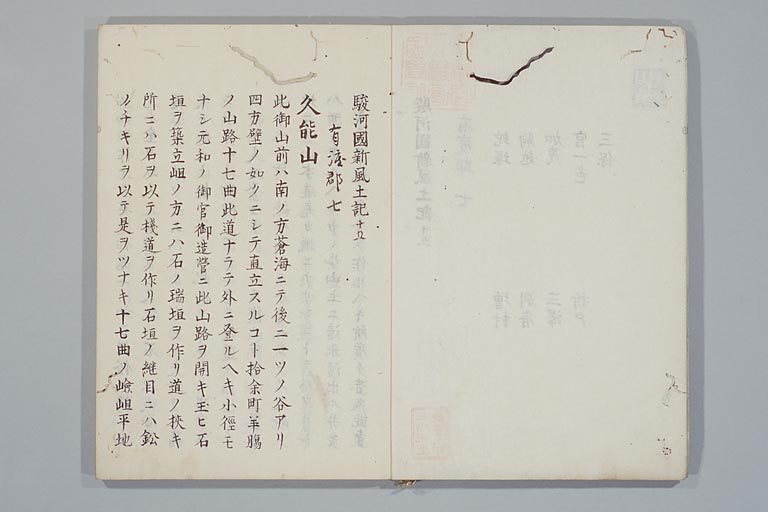 駿河國新風土記 十五
有渡郡 七
久能山
此御山前ハ南ノ方蒼海ニテ後ニ一ツノ谷アリ
四方壁ノ如クニシテ直立スルコト拾余町羊腸
ノ山路十七曲此道ナラテ外ニ登ルヘキ小徑モ
ナシ元和ノ御宮御造営ニ此山路ヲ開キ玉ヒ石
垣ヲ築立岨ノ方ニハ石ノ瑞垣ヲ作リ道ノ狹キ
所ニハ石ヲ以テ棧道ヲ作リ石垣ノ継目ニハ鉛
ノチキリヲ以テ是ヲツナキ十七曲ノ嶮岨平地